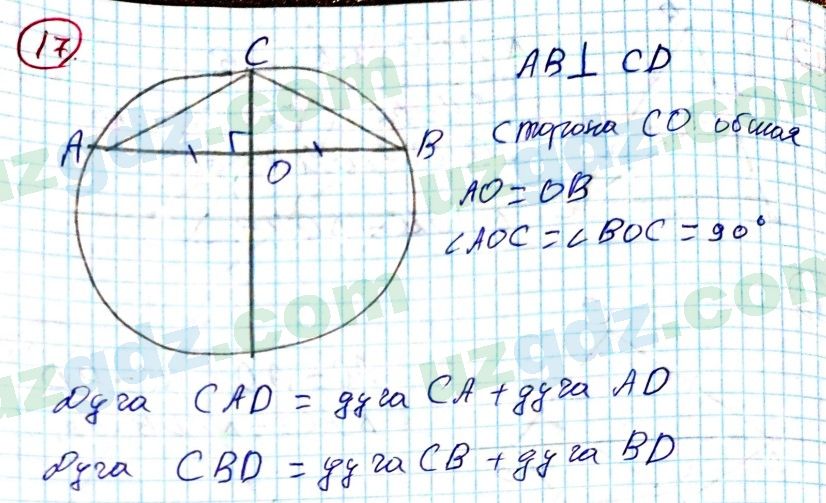 17
C
AB⊥ CD
Сторона CO общая
A
B
O
AO=OB
∠AOC=∠BOC=90°
Дуга CAD = дуга CA + дуга AD
Дуга CBD = дуга CB + дуга BD
uzgdz.com
uzgdz.com
uzgdz.com
uzgdz.com